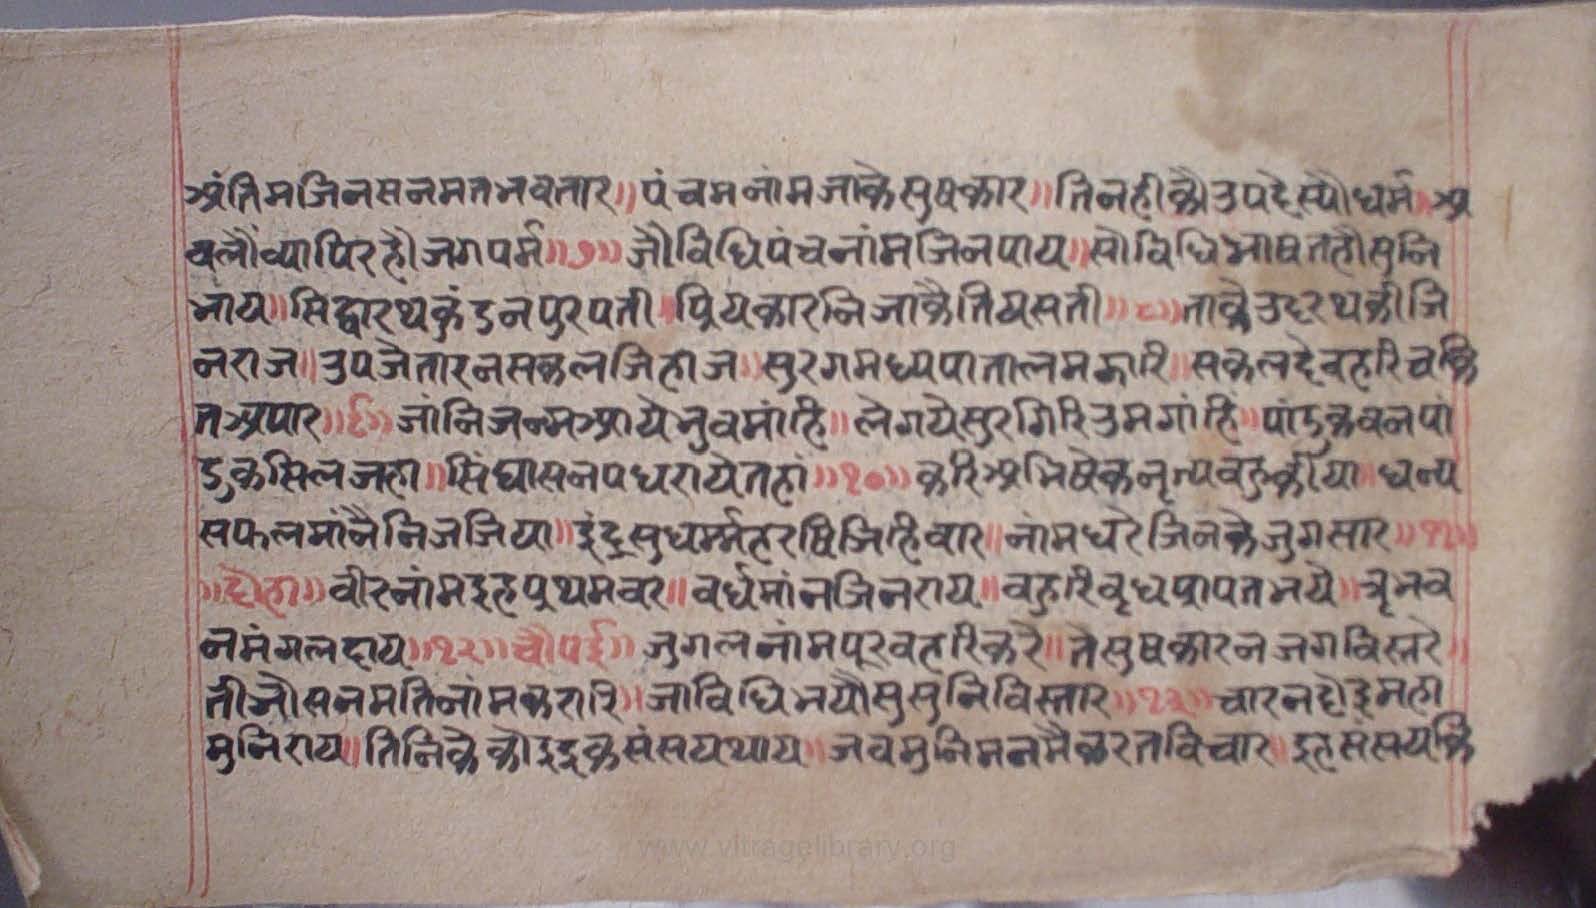 अंतिमजिनसनमतभवतार॥पंचमनांमजाकेसुषकार॥तिनहीकौउपदेस्यौधर्म॥अ
वलौंव्यापिरहौजगपर्म॥७॥जौविधिपंचनांमजिनपाय॥सोविधिभाषतहौसुनि
भाय॥सिद्धारथकुंडनपुरपती॥प्रियकारनिजाकैतियसती॥८॥ताकैउदरथकीजि
नराज॥उपजेतारनसकलजिहाज॥सुरगमध्यपातालमझारि॥सकलदेवहरिचक्रि
तअपार॥९॥जांनिजन्मआयेभुवमांहि॥लेगयेसुरगिरिउमगांहिं॥पांडुकवनपां
डुकसिलजहा॥सिंघासनपधरायेतहां॥१०॥करिअभिषेकनृत्यवहुकीया॥धन्य
सफलमांनैनिजजिया॥इंद्रसुधर्म्महरषिजिहिवार॥नांमधरेजिनकेजुगसार॥११॥
॥दोहा॥वीरनांमइहप्रथमवर॥वर्धमांनजिनराय॥वहुरिवृधप्रापतभये॥त्रृभव
नमंगलदाय॥१२॥चौपई॥जुगलनांमपूरवहरिकरे॥तेसुषकारनजगविस्तरे॥
तीजौसनमतिनांमकरारि॥जाविधिभयौसुसुनिविस्तार॥१३॥चारनदोइमहा
मुनिराय॥तिनिकेकोइइकसंसयथाय॥जवमुनिमनमैकरतविचार॥इहसंसयकि
www.vitragelibrary.org